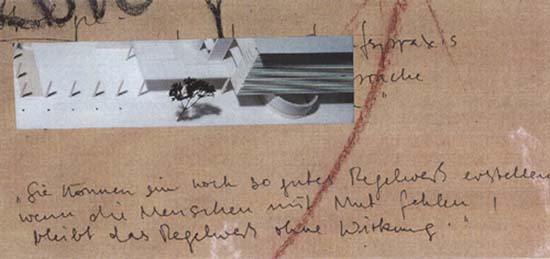 fspraxis
prache
"
„Sie können ein noch so gutes Regelwerk erstellen
wenn die Menschen mit Mut fehlen,
bleibt das Regelwerk ohne Wirkung."